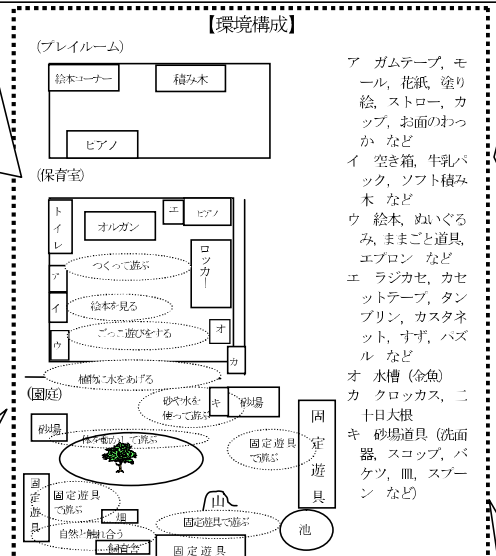 【環境構成】
(プレイルーム)
絵本コーナー
積み木
ピアノ
(保育室)
トイレ
オルガン
エ
ピアノ
ロッカー
つくって遊ぶ
ア
絵本を見る
イ
ごっこ遊びをする
オ
ウ
カ
植物に水をあげる
(園庭)
砂や水を
使って遊ぶ
キ
砂場
砂場
体を動かして遊ぶ
固定遊具
で遊ぶ
固定遊具
固定遊具
固定遊具
で遊ぶ
畑
山
固定遊具で遊ぶ
池
自然と触れ合う
飼育舎
固定遊具
ア ガムテープ, モ
ール, 花紙, 塗り
絵, ストロー, カ
ップ, お面のわっ
か など
イ 空き箱, 牛乳パ
ック, ソフト積み
木 など
ウ 絵本, ぬいぐる
み, ままごと道具,
エプロン など
エ ラジカセ, カセ
ットテープ, タン
ブリン, カスタネ
ット, すず, パズ
ル など
オ 水槽 (金魚)
カ クロッカス, 二
十日大根
キ 砂場道具 (洗面
器, スコップ, バ
ケツ, 皿, スプー
ン など)